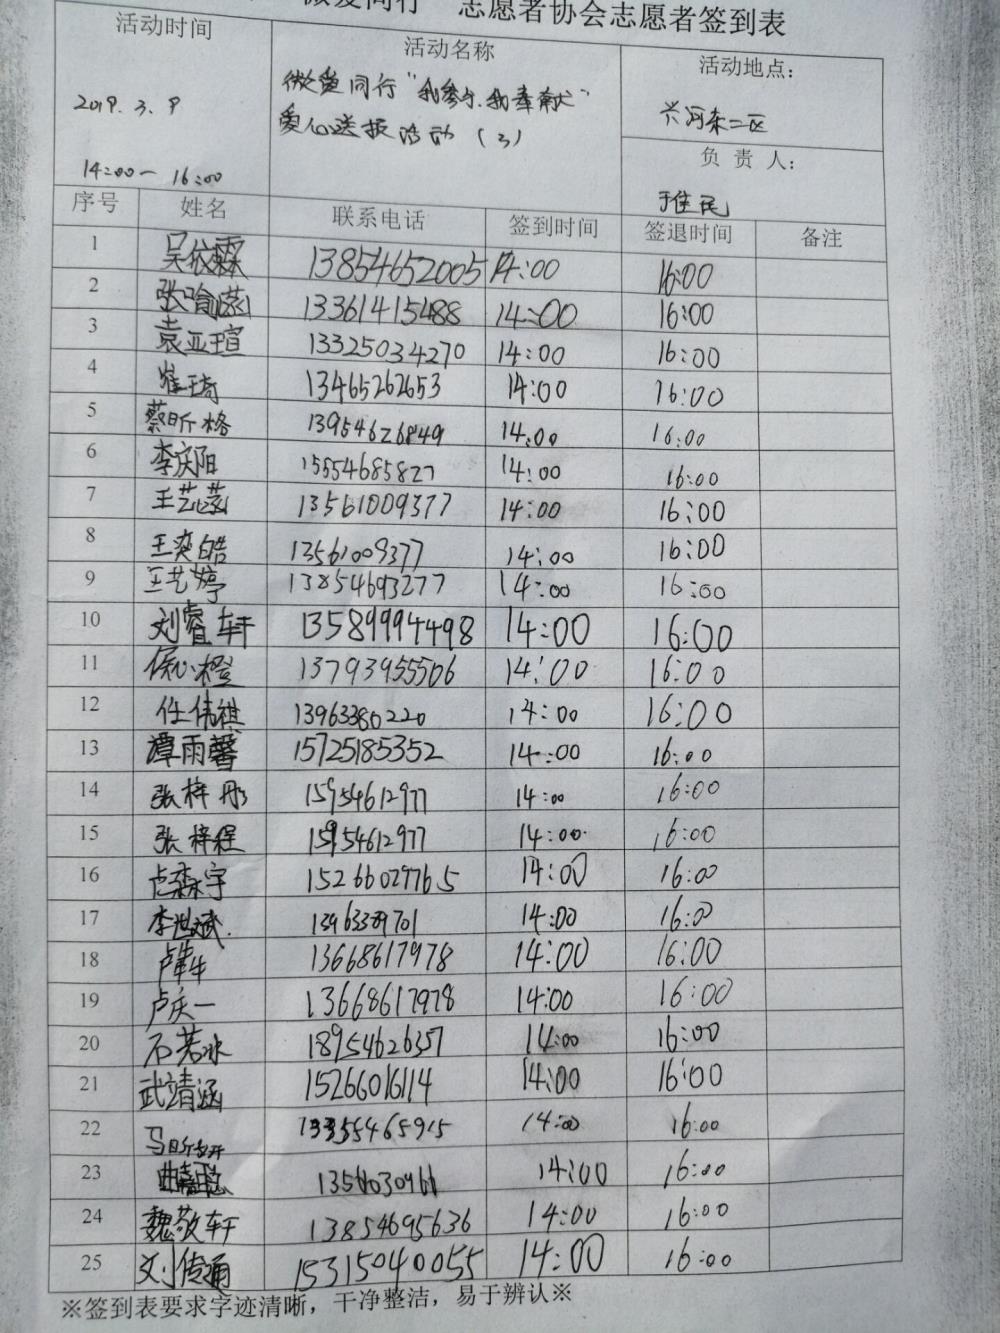 微爱同行 志愿者协会志愿者签到表
活动时间 活动名称 活动地点：
2019.3.9 微爱同行“我参与、我奉献” 兴河东二区
爱心送报活动（3） 负 责 人：
14:00— 16:00
序号 姓名 联系电话 签到时间 签退时间 备注
1 吴依霖 13854652005 14:00 16:00
2 张瑜菡 13361415488 14:00 16:00
3 袁亚瑄 13325034270 14:00 16:00
4 崔琦 13465262653 14:00 16:00
5 蔡昕格 13954626849 14:00 16:00
6 李庆阳 15554685827 14:00 16:00
7 王艺菡 13561009377 14:00 16:00
8 王奕皓 13561009377 14:00 16:00
9 王艺婷 13854693277 14:00 16:00
10 刘睿轩 13589994498 14:00 16:00
11 心橙 13793955506 14:00 16:00
12 任伟祺 13963380220 14:00 16:00
13 谭雨馨 15725185352 14:00 16:00
14 张梓彤 15954612977 14:00 16:00
15 张梓程 15954612977 14:00 16:00
16 卢森宇 15266029765 14:00 16:00
17 李世斌 13963389701 14:00 16:00
18 13668617978 14:00 16:00
19 卢庆一 13668617978 14:00 16:00
20 石若冰 18954626357 14:00 16:00
21 武靖涵 15266016114 14:00 16:00
22 马昕妍 14:00 16:00
23 14:00 16:00
24 魏敬轩 13854695636 14:00 16:00
25 刘传通 15315040055 14:00 16:00
※签到表要求字迹清晰，干净整洁，易于辨认※